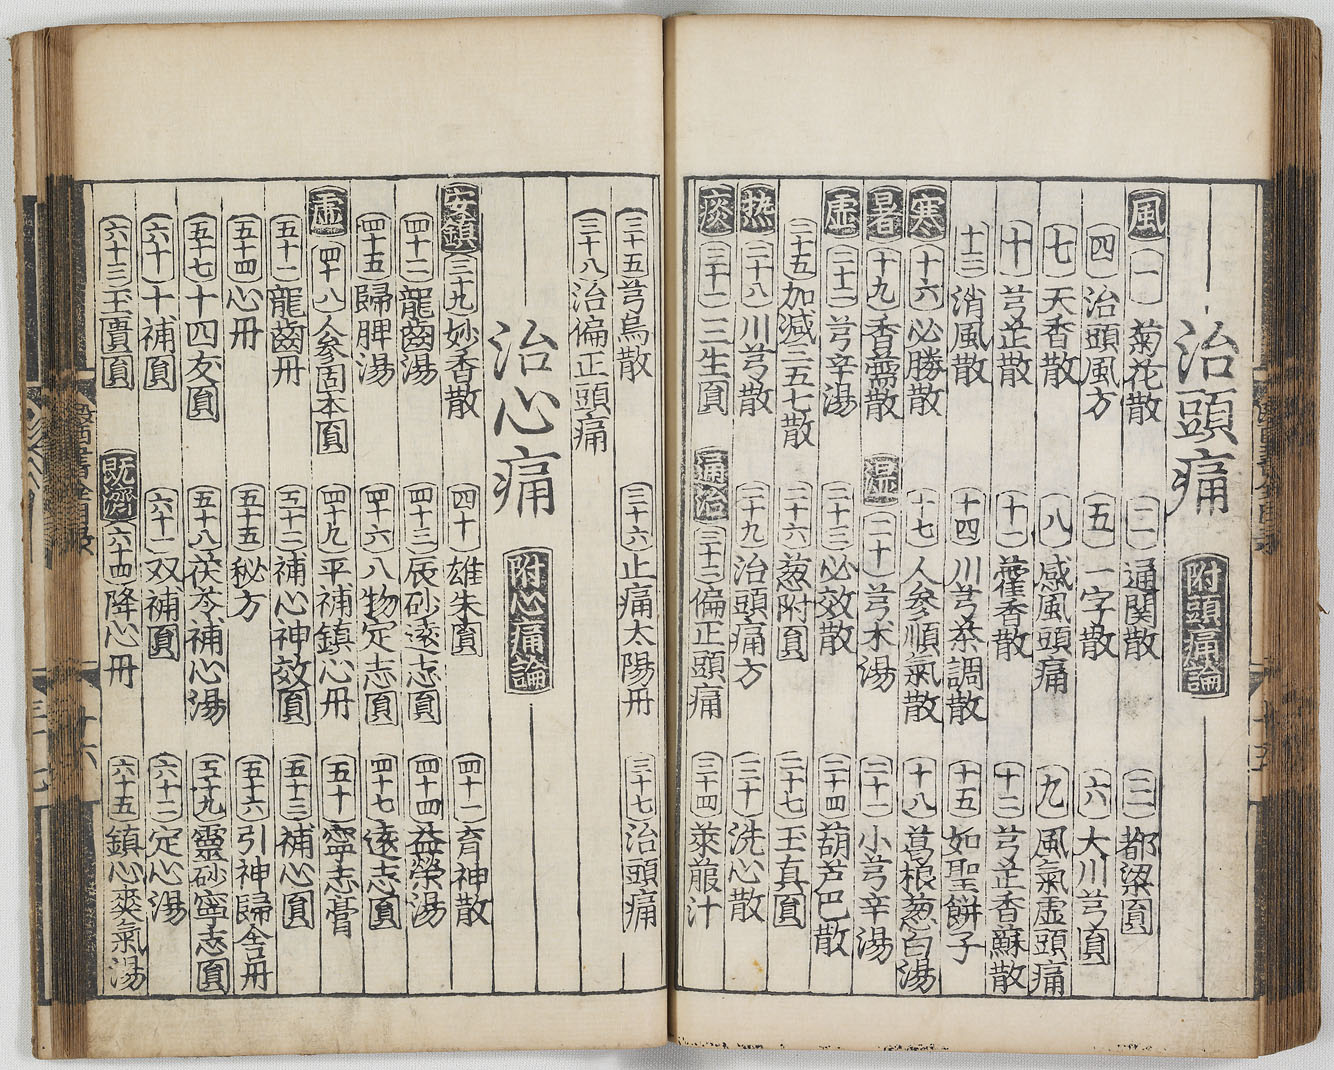 治頭痛 附頭痛論
風 一 菊花散 二 通関散 三 都梁圓
四 治頭風方 五 一字散 六 大川芎圓
七 天香散 八 感風頭痛 九 風氣虛頭痛
十 芎芷散 十一 藿香散 十二 芎芷香蘇散
十三 消風散 十四 川芎茶調散 十五 如聖餅子
寒 十六 必勝散 十七 人參順氣散 十八 葛根葱白湯
暑 十九 香薷散 湿 二十 芎朮湯 二十一 小芎辛湯
虛 二十二 芎辛湯 二十三 必效散 二十四 葫芦巴散
二十五 加減三五七散 二十六 葱附圓 二十七 玉真圓
热 二十八 川芎散 二十九 治頭痛方 三十 洗心散
痰 三十一 三生圓 通治 三十三 偏正頭痛 三十四 萊菔汁
三十五 芎烏散 三十六 止痛太陽丹 三十七 治頭痛
三十八 治偏正頭痛
治心痛 附心痛論
安鎮 三十九 妙香散 四十 雄朱圓 四十一 育神散
四十二 龍齒湯 四十三 辰砂遠志圓 四十四 益榮湯
四十五 歸脾湯 四十六 八物定志圓 四十七 遠志圓
虛 四十八 人參固本圓 四十九 平補鎮心丹 五十 寧志膏
五十一 龍齒丹 五十二 補心神效圓 五十三 補心圓
五十四 心丹 五十五 秘方 五十六 引神歸舍丹
五十七 十四友圓 五十八 茯苓補心湯 五十九 靈砂寧志圓
六十 十補圓 六十一 双補圓 六十二 定心湯
六十三 玉貴圓 既濟 六十四 降心丹 六十五 鎮心爽氣湯